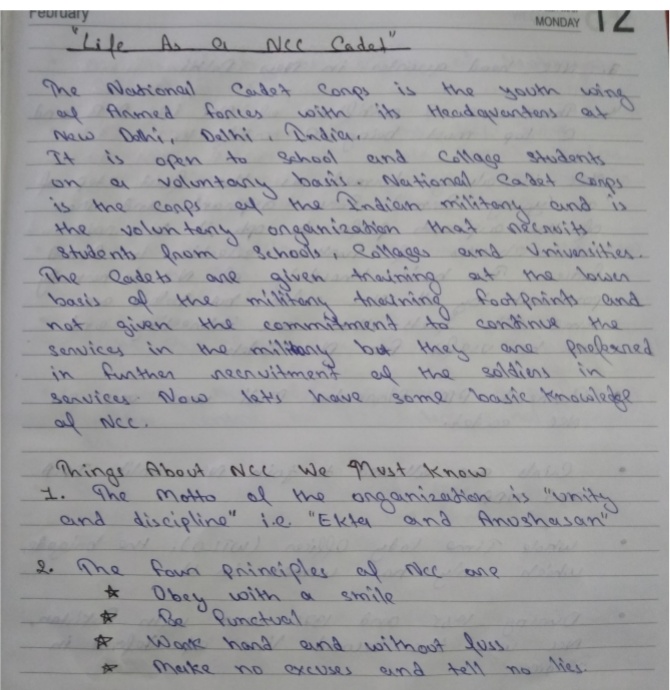 February
MONDAY 12
"Life As a NCC Cadet"
The National Cadet Corps is the youth wing
of Armed forces with its Headquarters at
New Delhi, Delhi, India.
It is open to School and Collage Students
on a voluntary basis. National Cadet Corps
is the corps of the Indian military and is
the voluntary organization that recruits
students from Schools, Collages and Universities.
The Cadets are given training at the lower
basis of the military training footprints and
not given the commitment to continue the
services in the military but they are preferred
in further recruitment of the soldiers in
services. Now let's have some basic knowledge
of NCC.
Things About NCC We Must Know
1. The Motto of the organization is "unity
and discipline" i.e. "Ekta and Anushasan"
2. The four principles of NCC are
☆ Obey with a smile
☆ Be Punctual
☆ Work hard and without fuss
☆ Make no excuses and tell no lies.